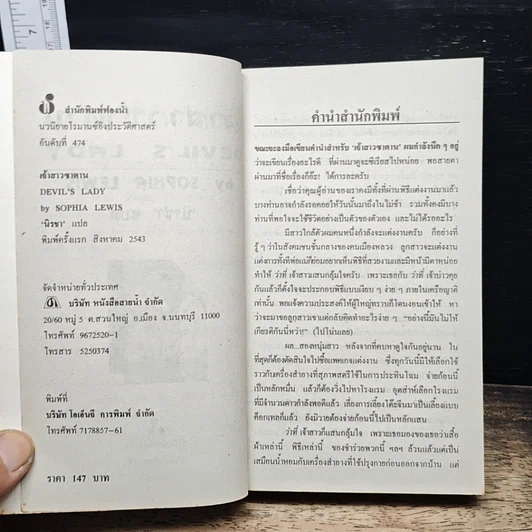 สำนักพิมพ์ฟองน้ำ
นวนิยายโรมานซ์อิงประวัติศาสตร์
อันดับที่ 474
เจ้าสาวซาตาน
DEVIL'S LADY
by SOPHIA LEWIS
"นิรชา" แปล
พิมพ์ครั้งแรก สิงหาคม 2543
จัดจำหน่ายทั่วประเทศ
บริษัท หนังสือสายน้ำ จำกัด
20/60 หมู่ 5 ต.สวนใหญ่ อ.เมือง จ.นนทบุรี 11000
โทรศัพท์ 9672520-1
โทรสาร 5250374
พิมพ์ที่
บริษัท โอเอ็นจี การพิมพ์ จำกัด
โทรศัพท์ 7178857-61
ราคา 147 บาท
คำนำสำนักพิมพ์
ขณะจะลงมือเขียนคำนำสำหรับ "เจ้าสาวซาตาน" ผมกำลังนึก ๆ อยู่
ว่าจะเขียนเรื่องอะไรดี ที่ผ่านมาดูจะซีเรียสไปหน่อย พอสายตา
ผ่านมาที่ชื่อเรื่องก็อ๊ะ! ได้การละครับ
เชื่อว่าคุณผู้อ่านของเราคงมีทั้งที่ผ่านพิธีแต่งงานมาแล้ว
บางท่านอาจกำลังรอคอยให้วันนั้นมาถึงในไม่ช้า รวมทั้งคงมีบาง
ท่านที่พอใจจะใช้ชีวิตอย่างเป็นตัวของตัวเอง และไม่ได้รออะไร
มีสาวใกล้ตัวผมคนหนึ่งกำลังจะแต่งงานครับ ก็อย่างที่
รู้ ๆ ว่าในสังคมชนชั้นกลางของคนเมืองหลวง ลูกสาวจะแต่งงาน
แต่งการทั้งทีพ่อแม่ก็ย่อมอยากเห็นพิธีที่สวยงามและมีหน้ามีตาหน่อย
ทำให้ ว่าที่ เจ้าสาวแสนกลุ้มใจครับ เพราะเธอกับ ว่าที่ เจ้าบ่าวคุย
กันแล้วก็ตั้งใจจะประกอบพิธีแบบเงียบ ๆ ง่าย ๆ ภายในเครือญาติ
เท่านั้น พอแจ้งความประสงค์ให้ผู้ใหญ่ทราบก็โดนงอนเข้าให้ หา
ว่าจะมาขอลูกสาวเขาแต่กลับคิดทำอะไรง่าย ๆ "อย่างนี้มันไม่ให้
เกียรติกันนี่หว่า!" (ไปโน่นเลย)
ผล..สองหนุ่มสาว หลังจากที่คบหาดูใจกันอยู่นาน ใน
ที่สุดก็ต้องตัดสินใจไปซื้อแพคเกจแต่งงาน ซึ่งทุกวันนี้มีให้เลือกใช้
ราวกับเครื่องสำอางที่สุภาพสตรีใช้ในการประทินโฉม จ่ายก้อนนี้
เป็นหลักหมื่น แล้วก็ต้องวิ่งไปหาโรงแรม อุตส่าห์เลือกโรงแรม
ที่มีจำนวนดาวกำลังพอดีแล้ว เลี่ยงการเลี้ยงโต๊ะจีนมาเป็นเลี้ยงแบบ
ค็อกเทลก็แล้ว ยังมิวายต้องจ่ายก้อนนี้ไปเป็นหลักแสน
ว่าที่ เจ้าสาวก็แสนกลุ้มใจ เพราะเธอมองของเธอว่าเสื้อ
ผ้าเหล่านี้ พิธีเหล่านี้ ของชำร่วยพวกนี้ ฯลฯ ล้วนแล้วแต่เป็น
เสมือนน้ำหอมกับเครื่องสำอางที่ใช้ปรุงกายก่อนออกจากบ้าน แต่